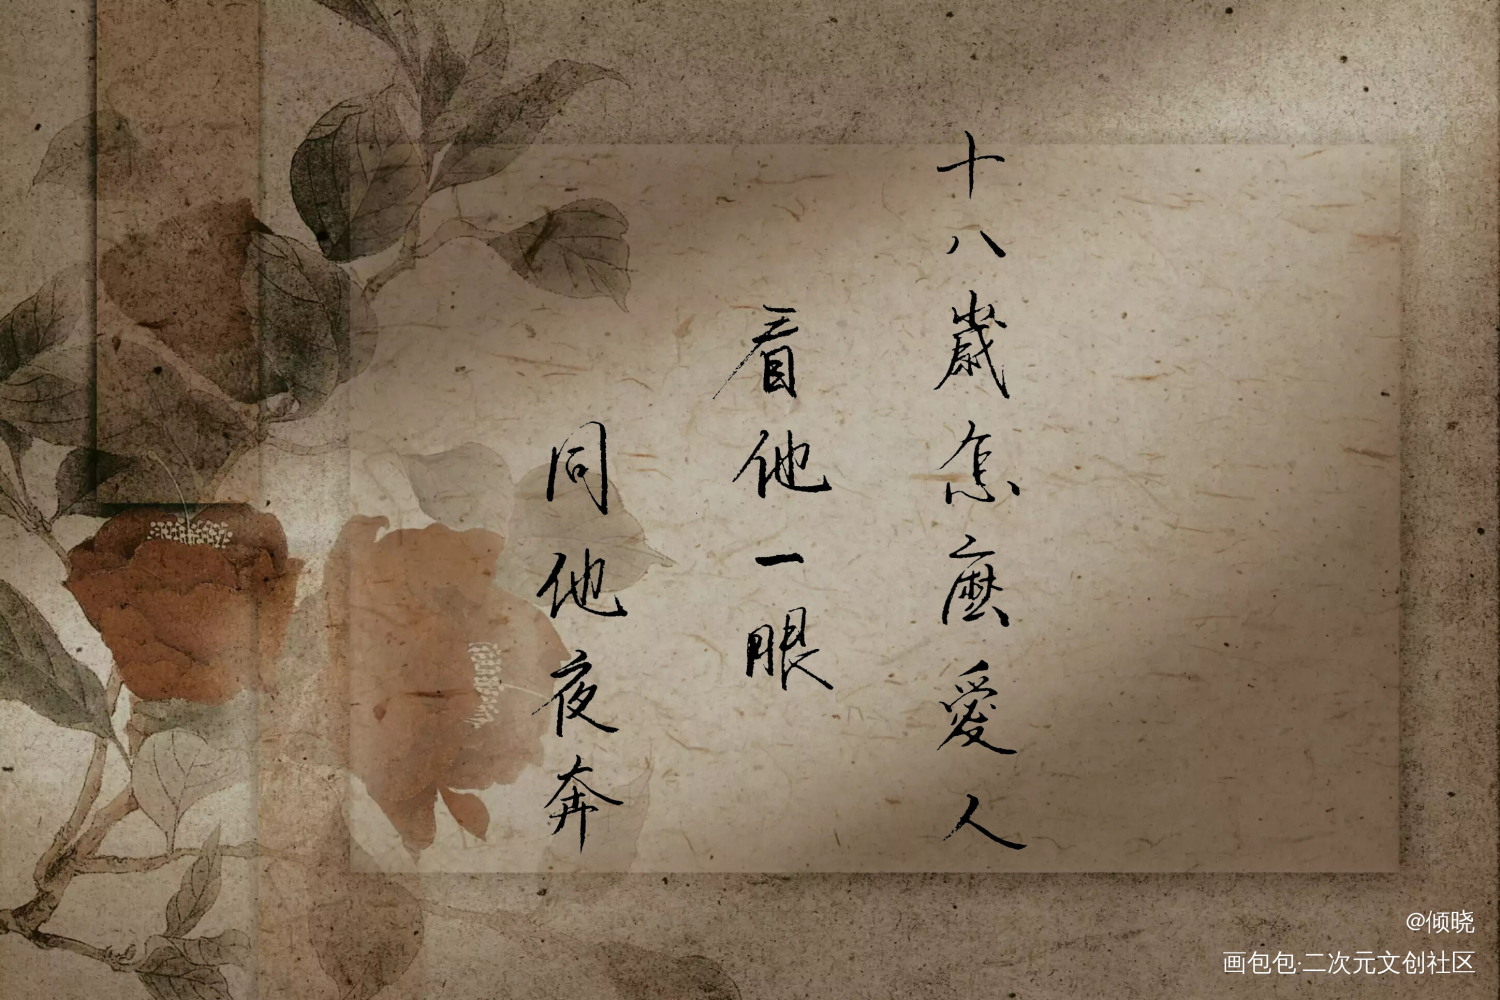 十八歲怎麽愛人
看他一眼
同他夜奔
@倾晓
画包包·二次元文创社区